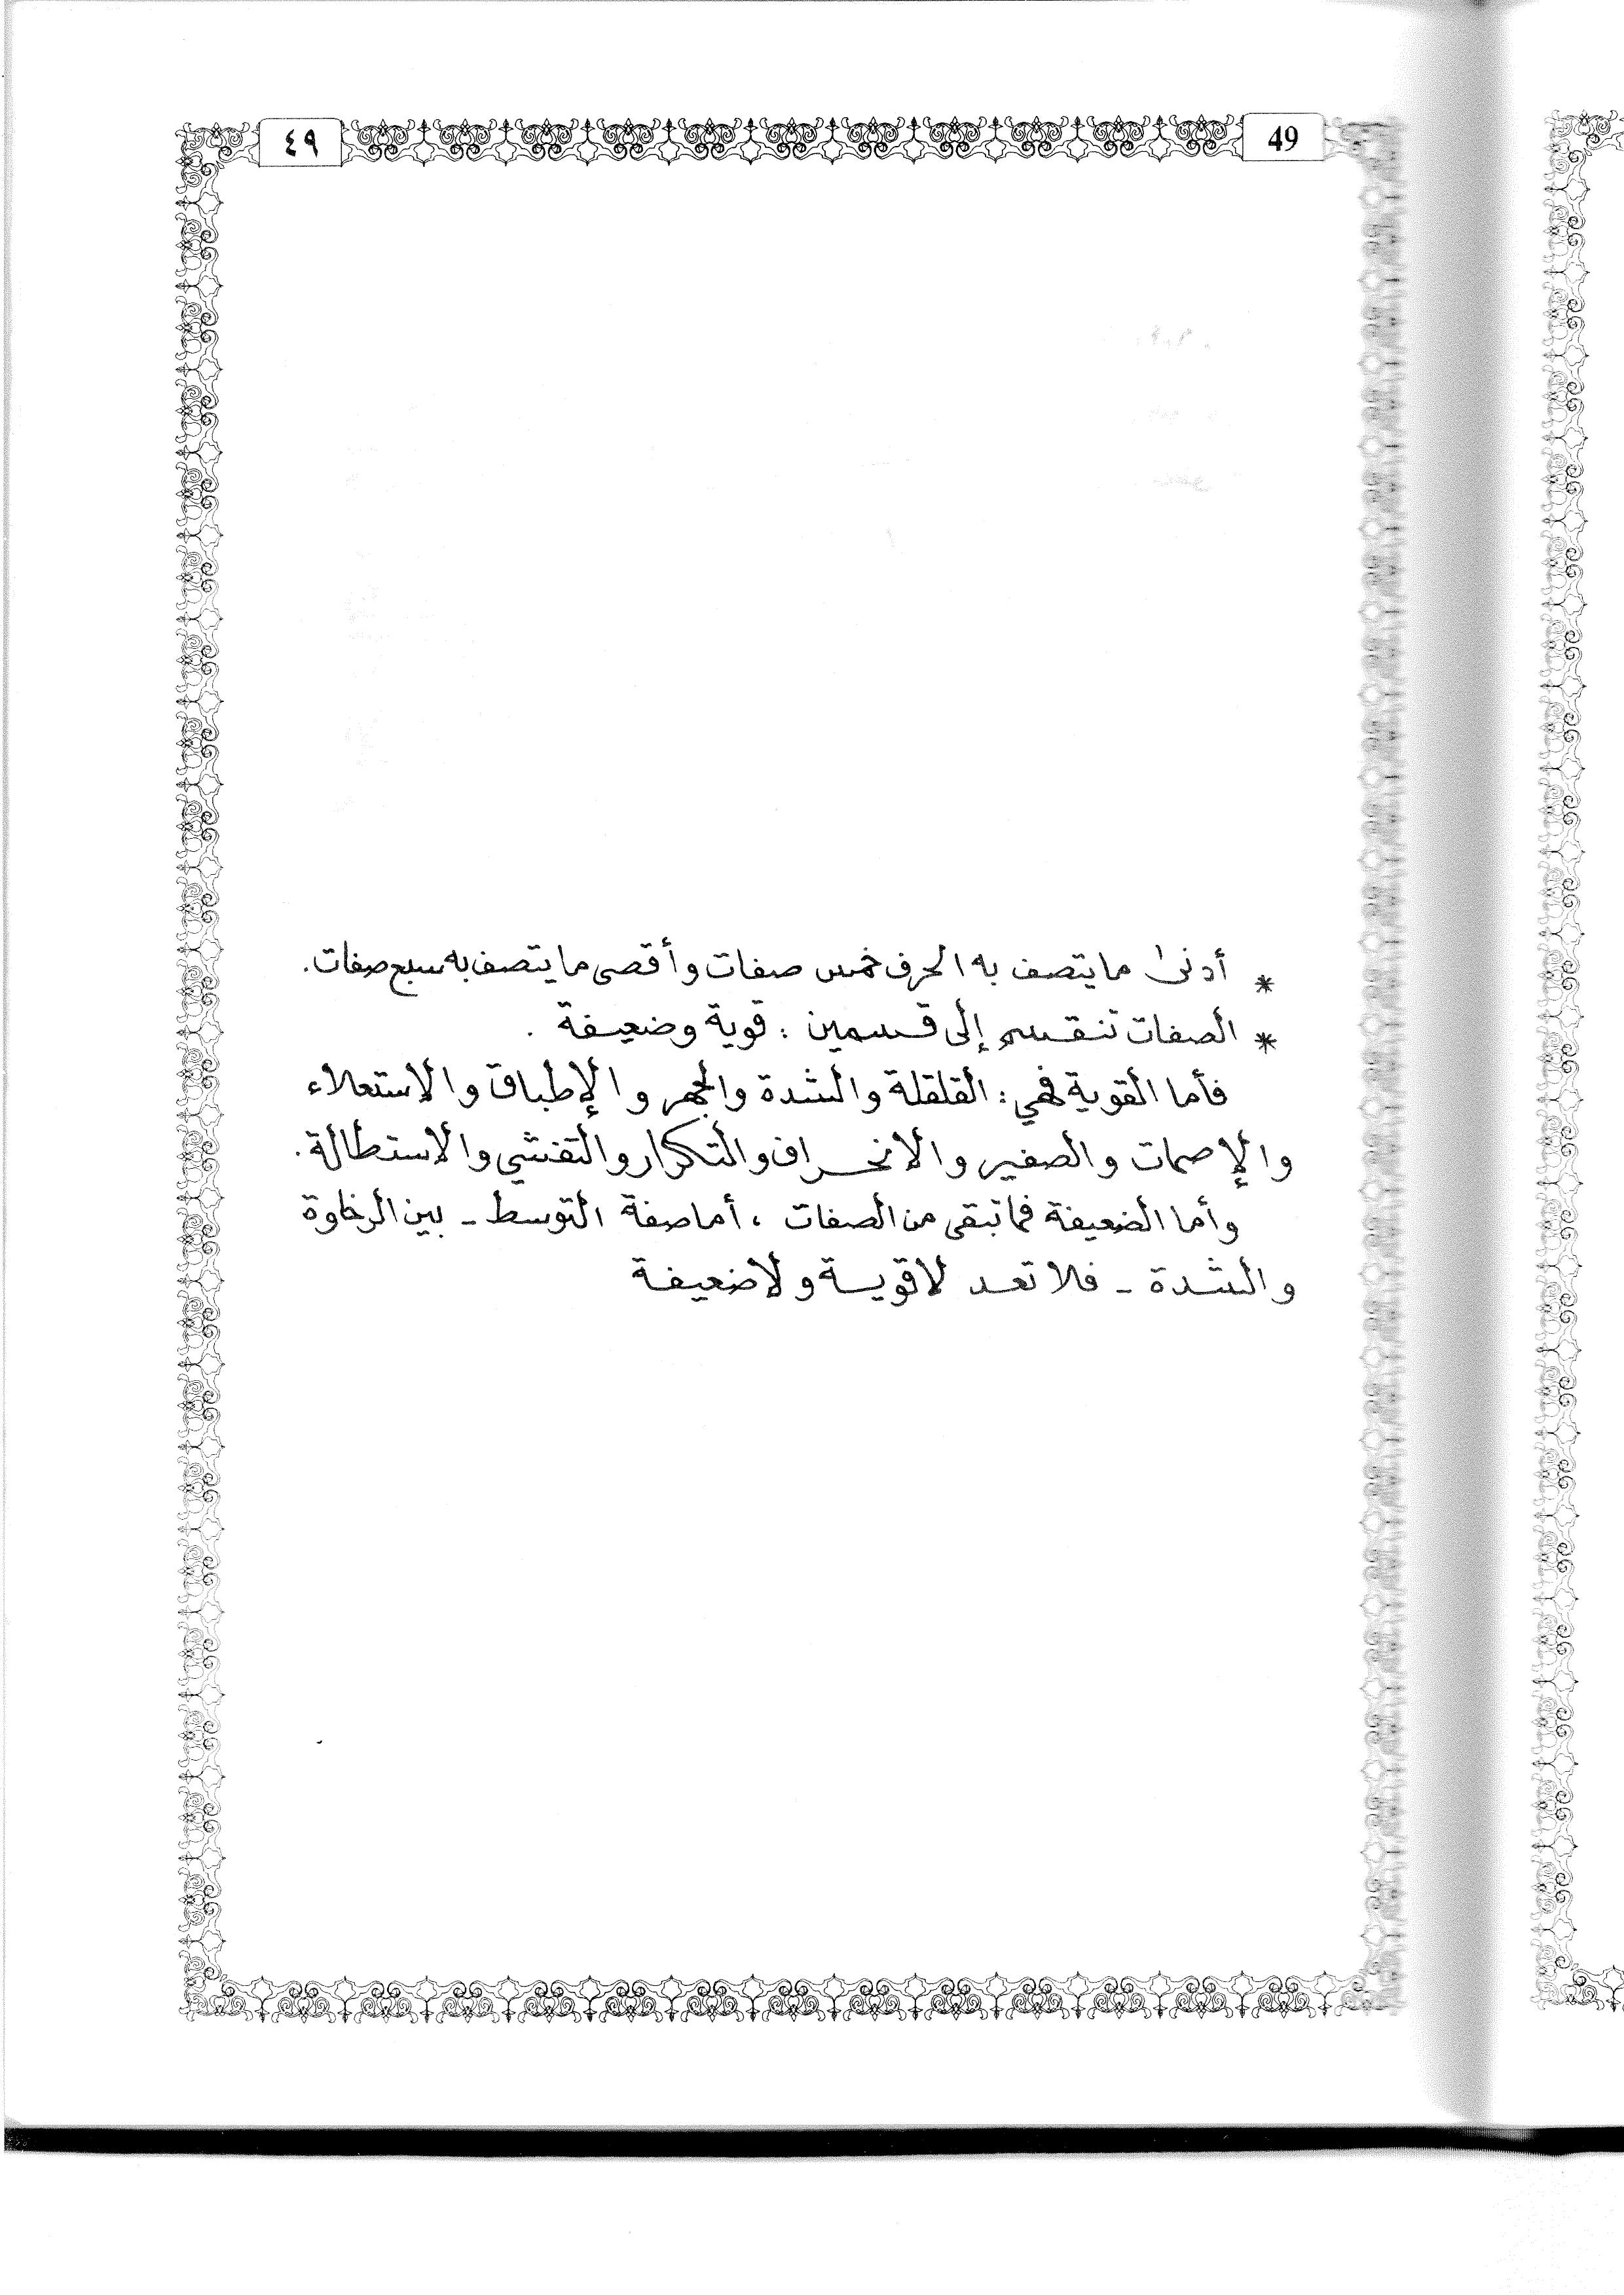 49
٤٩
* أدنى ما يتصف به الحرف خمس صفات وأقصى ما يتصف به سبع صفات.
* الصفات تنقسم إلى قسمين : قوية وضعيفة .
فأما القوية فهي : القلقلة والشدة والجهر والإطباق والاستعلاء
والإصمات والصفير والانحراف والتكرار والتفشي والاستطالة.
وأما الضعيفة فما تبقى من الصفات ، أما صفة التوسط - بين الرخاوة
والشدة - فلا تعد لا قوية ولا ضعيفة